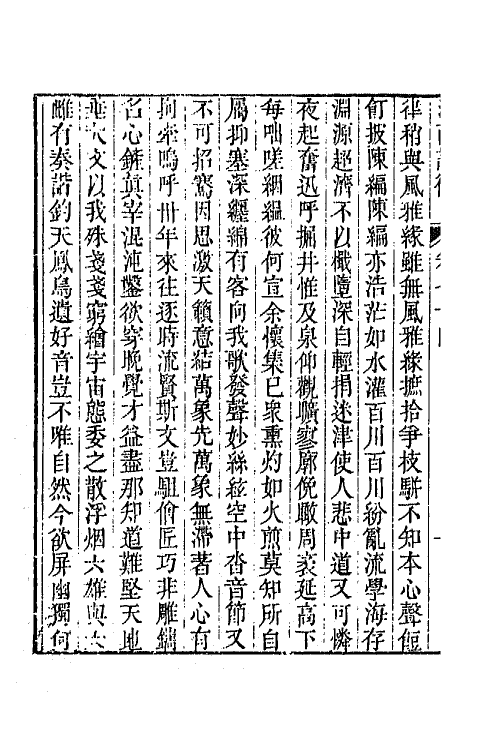 律稍與風雅緣雖無風雅緣摭拾爭枝駢不知本心聲飽
飣披陳編陳編亦浩茫如水灌百川百川紛亂流學海存
淵源超濟不以檝墮深自輕捐迷津使人悲中道又可憐
夜起奮迅呼掘井惟及泉仰觀曠寥廓俛瞰周袤延高下
每咄嗟絪縕彼何宣余懷集已衆熏灼如火煎莫知所自
屬抑塞深纒綿有客向我歌發聲妙絲絃空中沓音節又
不可招騫因思激天籟意結萬象先萬象無滯著人心有
拘牽嗚呼卅年來往逐時流賢斯文豈駔儈匠巧非雕鐫
名心錐真宰混沌鑿欲穿晚覺才益盡那知道難堅天地
大文以我殊戔戔窮繪宇宙態委之散浮烟大雄與大
雌有奏諧鈞天鳳鳥遺好音豈不唯自然今欲屏幽獨何